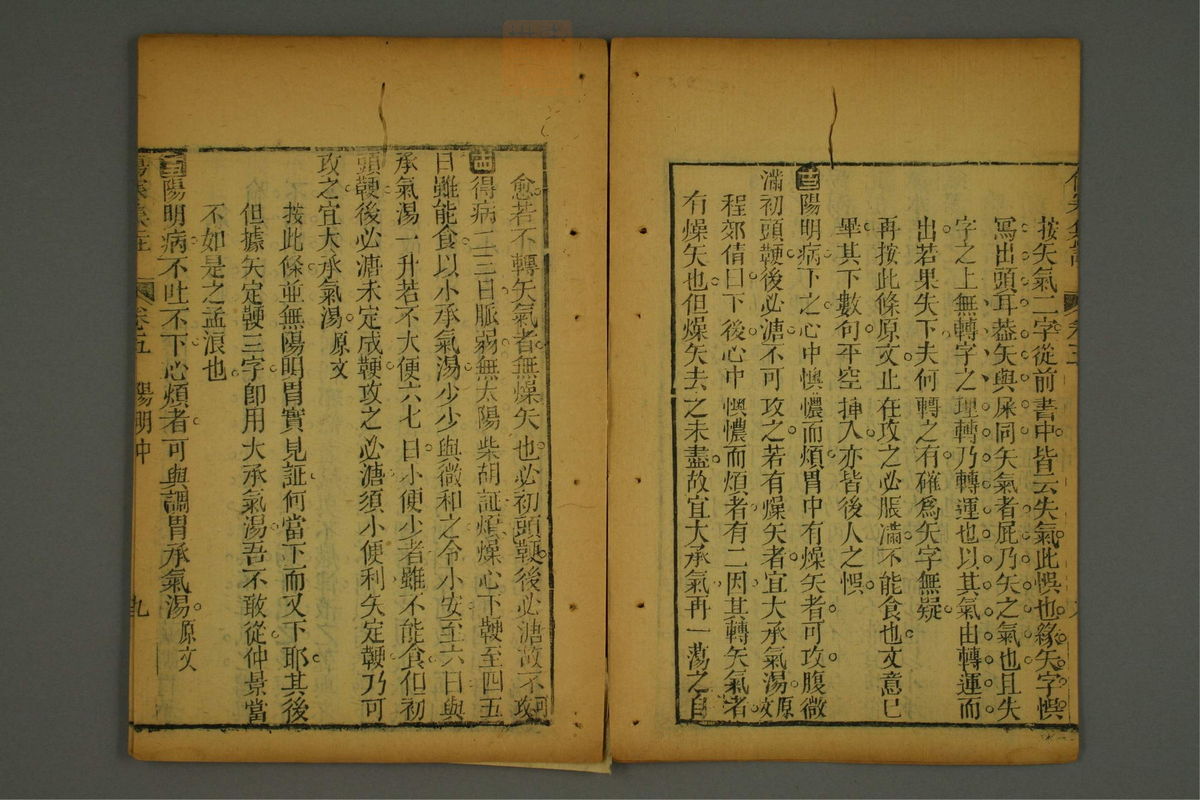 按矢氣二字從前書中皆云失氣此悞也緣矢字悞
寫出頭耳葢矢與屎同矢氣者屁乃矢之氣也且失
字之上無轉字之理轉乃轉運也以其氣由轉運而
出若果失下夫何轉之有確爲矢字無疑
再按此條原文止在攻之必脹滿不能食也文意已
畢其下數句平空揷入亦皆後人之悞
陽明病下之心中懊憹而煩胃中有燥矢者可攻腹微
滿初頭鞕後必溏不可攻之若有燥矢者宜大承氣湯原文
程郊倩曰下後心中懊憹而煩者有二因其轉矢氣者
有燥矢也但燥矢去之未盡故宜大承氣再一蕩之自
愈若不轉矢氣者無燥矢也必初頭鞕後必溏故不可攻
得病二三日脈弱無太陽柴胡証煩燥心下鞕至四五
日雖能食以小承氣湯少少與微和之令小安至六日與
承氣湯一升若不大便六七日小便少者雖不能食但初
頭鞕後必溏未定成鞕攻之必溏須小便利矢定鞕乃可
攻之宜大承氣湯原文
按此條並無陽明胃實見証何當下而又下耶其後
但據矢定鞕三字卽用大承氣湯吾不敢從仲景當
不如是之孟浪也
陽明病不吐不下心煩者可與調胃承氣湯原文
卷五 陽明中 九